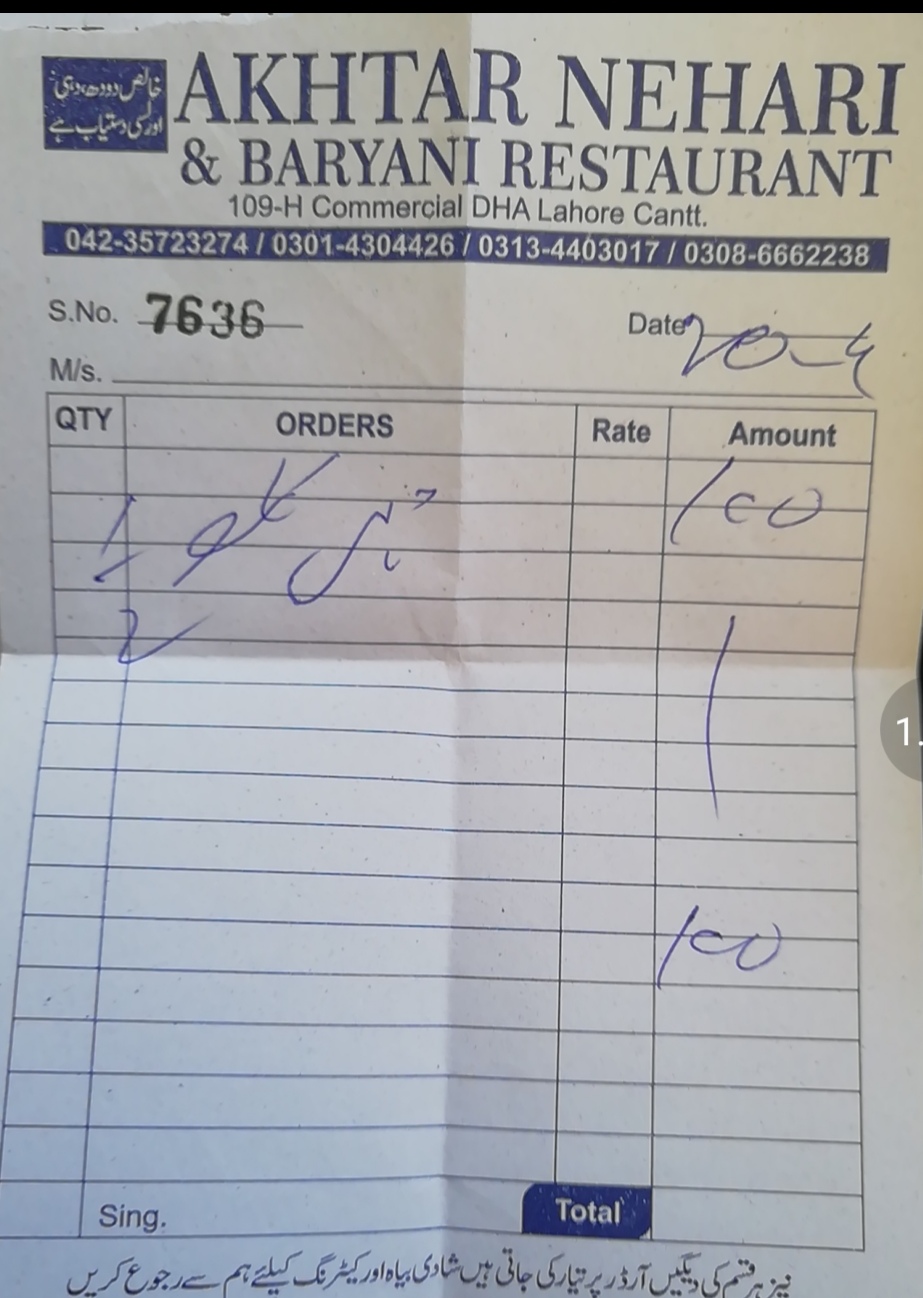 خالص دودھ، دہی
اور لسی دستیاب ہے
AKHTAR NEHARI
& BARYANI RESTAURANT
109-H Commercial DHA Lahore Cantt.
042-35723274 / 0301-4304426 / 0313-4403017 / 0308-6662238
S.No. 7636 Date 20-4
M/s.
QTY ORDERS Rate Amount
100
1/2 کلو
100
Sing. Total
نیز ہر قسم کی دیگیں آرڈر پر تیار کی جاتی ہیں شادی بیاہ اور کیٹرنگ کیلئے ہم سے رجوع کریں
1.